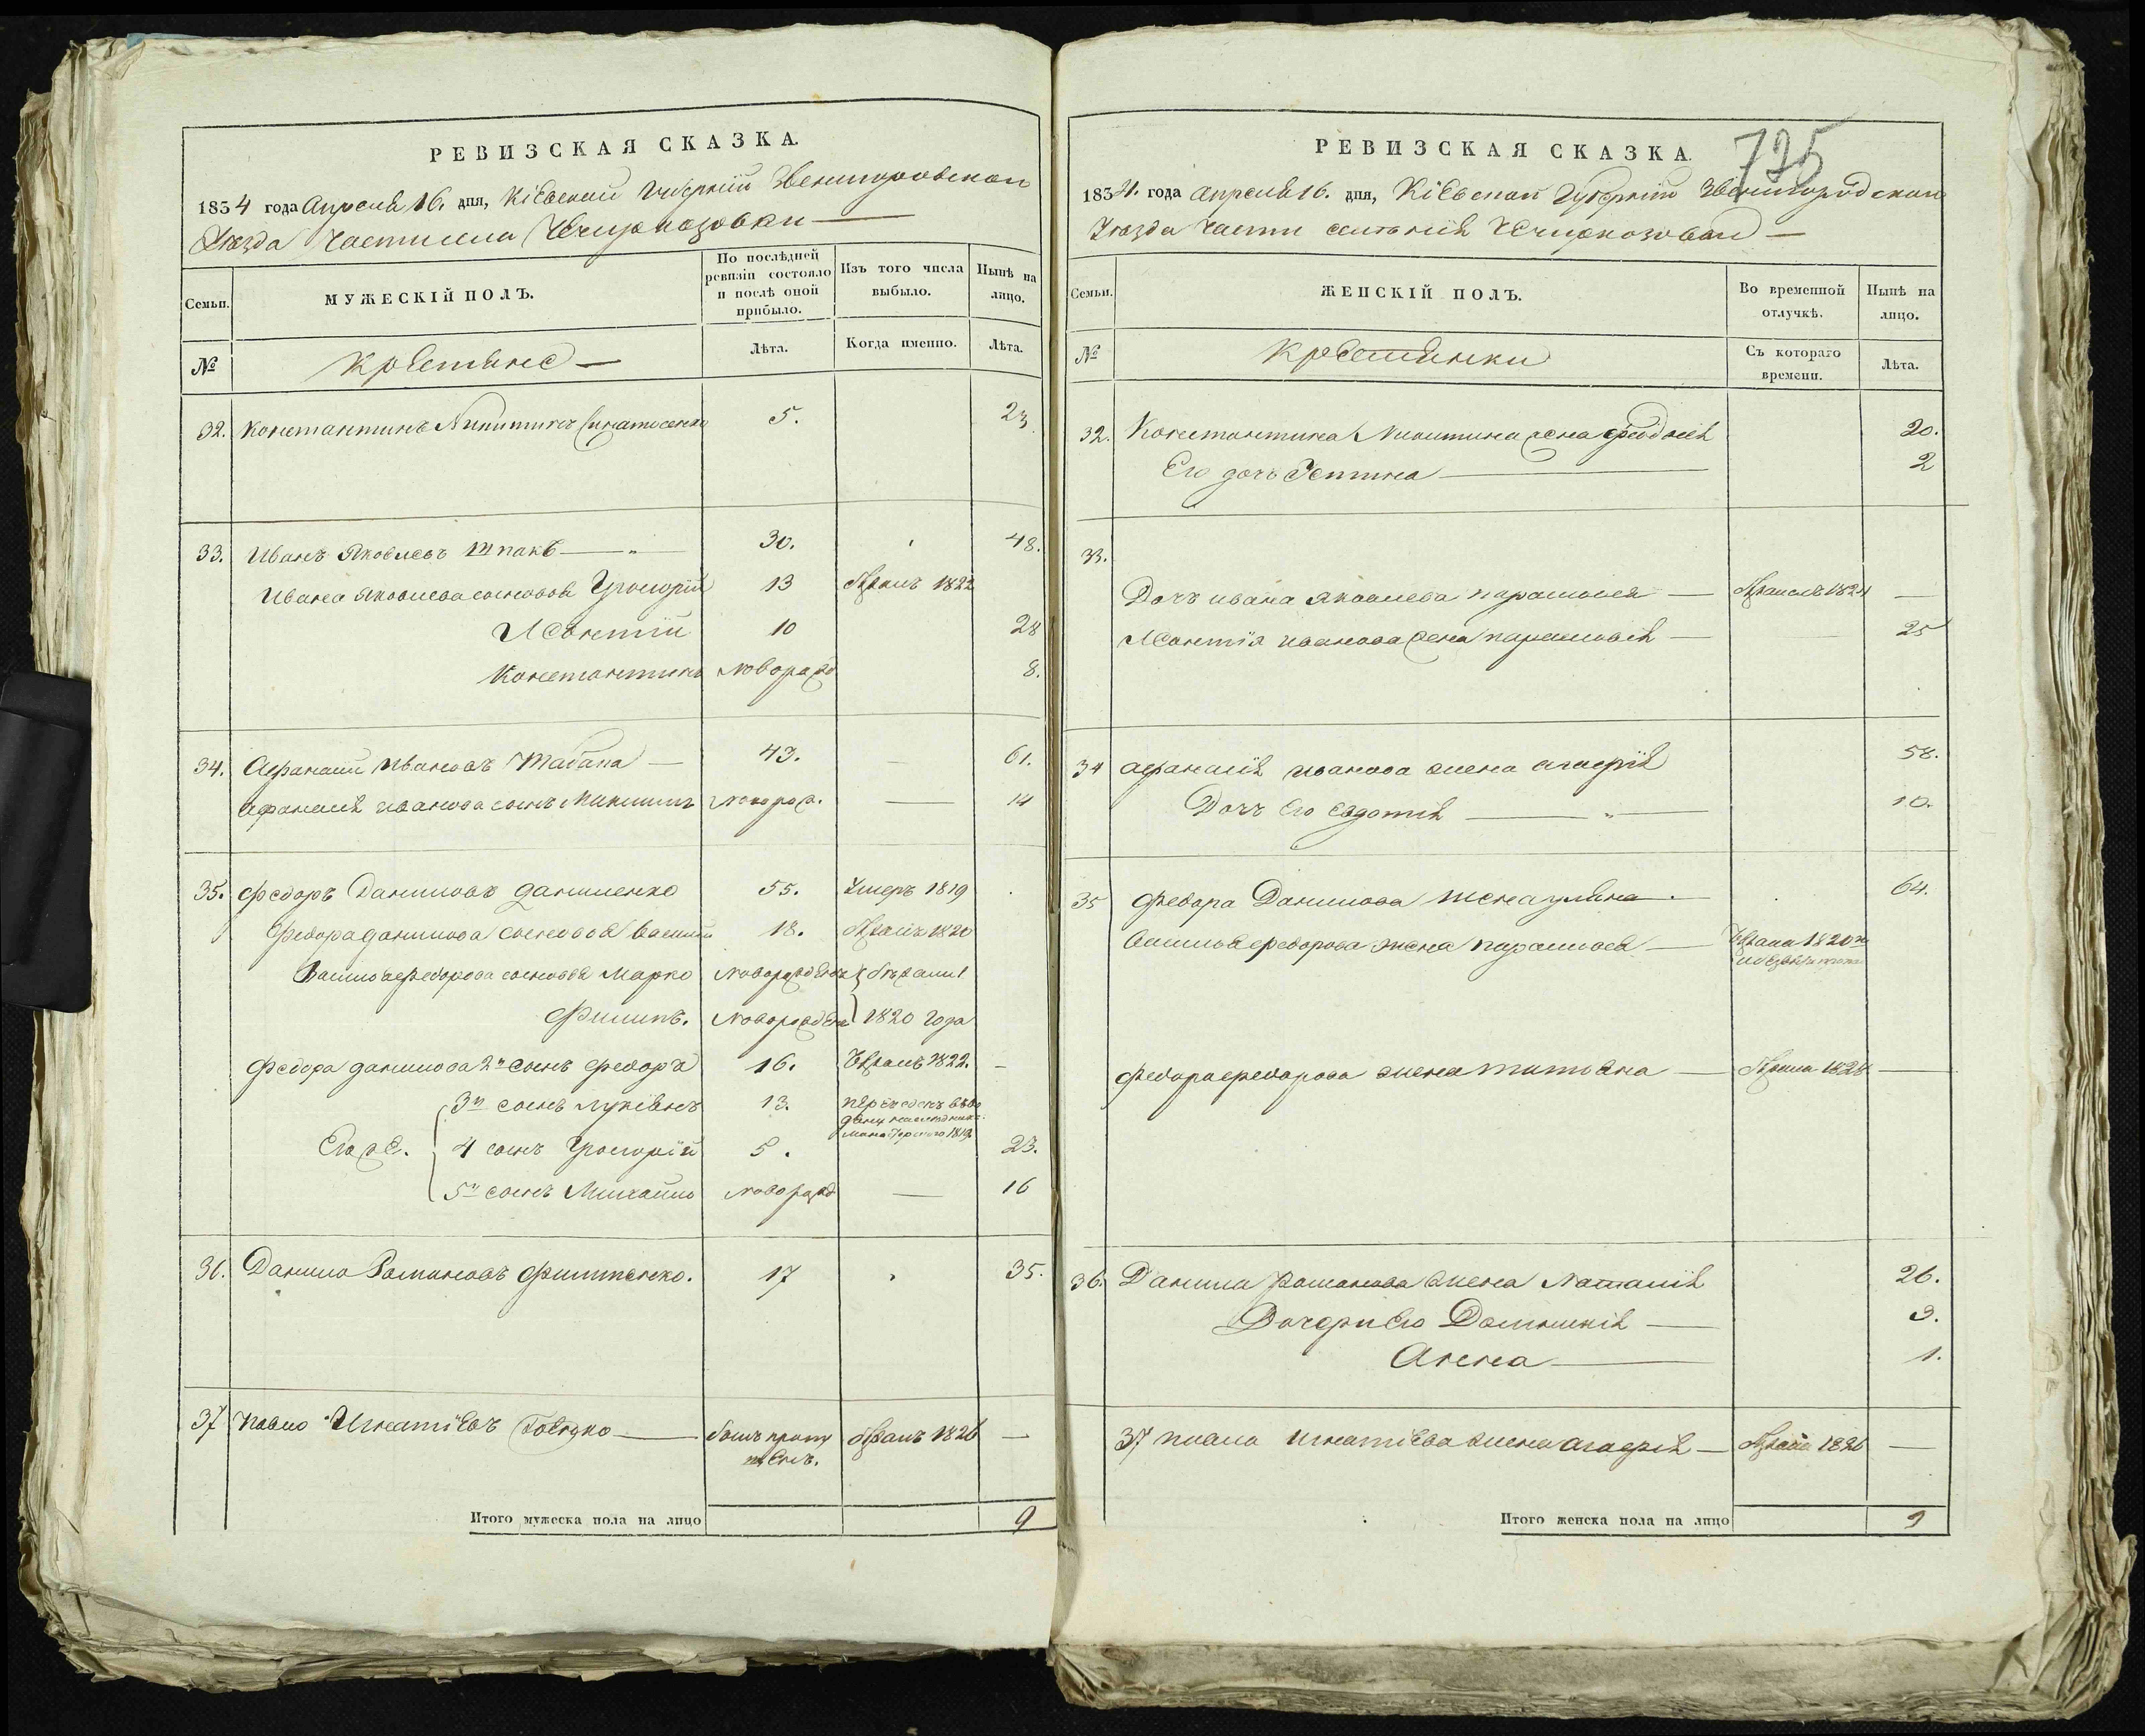 РЕВИЗСКАЯ СКАЗКА.
1834 года Апреля 16. дня, Кіевской губерніи Звенигородскаго
Уезда Части села Чечужкозовки
Семьи.
МУЖЕСКІЙ ПОЛЪ.
По послѣдней ревизіи состояло и послѣ оной прибыло.
Изъ того числа выбыло.
Нынѣ на лицо.
№
Крестяне
Лѣта.
Когда именно.
Лѣта.
32. Константинъ Никитинъ 5. 23.
33. Иванъ Яковлевъ Шпакъ 30. 48.
Ивана Яковлева сыновья Григорій 13 Бежалъ 1822
Леонтій 10 28
Константинъ новорожд 8.
34. Афанасій Ивановъ Шабала 43. 61.
Афанасія Иванова сынъ Микита новорож. 14
35. Федоръ Даниловъ Даниленко 55. Умеръ 1819
Федора Данилова сыновья Василій 18. Бежалъ 1820
Василія Федорова сыновья Марко новорожденъ бежали
Филипъ. новорожденъ 1820 года
Федора Данилова 2й сынъ Федоръ 16. Бежалъ 1822.
3й сынъ Лукіянъ 13.
Его же. 4 сынъ Григорій 5. 23.
5й сынъ Михайло новорожд 16
36. Данило Романовъ Филипенко. 17 35.
37 Павло Игнатіевъ былъ пропущенъ. бежалъ 1826
Итого мужеска пола на лицо 9
РЕВИЗСКАЯ СКАЗКА.
725
1834. года Апреля 16. дня, Кіевской Губерніи Звенигородскаго
Уезда Части селенія Чечужкозовки
Семьи.
ЖЕНСКІЙ ПОЛЪ.
Во временной отлучкѣ.
Нынѣ на лицо.
№
Крестянки
Съ котораго времени.
Лѣта.
32. Константина Никитина жена Феодосія 20.
Его дочь Устина 2
33.
Дочь Ивана Яковлева Парасковія Бежала 1824
Леонтія Иванова жена Парасковія 25
34 Афанасія Иванова жена Агафія 58.
Дочь Его Евдокія 10.
35 Федора Данилова жена Уляна 64.
Василія Федорова жена Парасковія Бежала 1820го
Федора Федорова жена Татіяна Бежала 1828
36. Данила Романова жена Наталія 26.
Дочери Его Домникія 3.
Анна 1.
37 Павла Игнатіева жена Агафія Бежала 1826
Итого женска пола на лицо 9